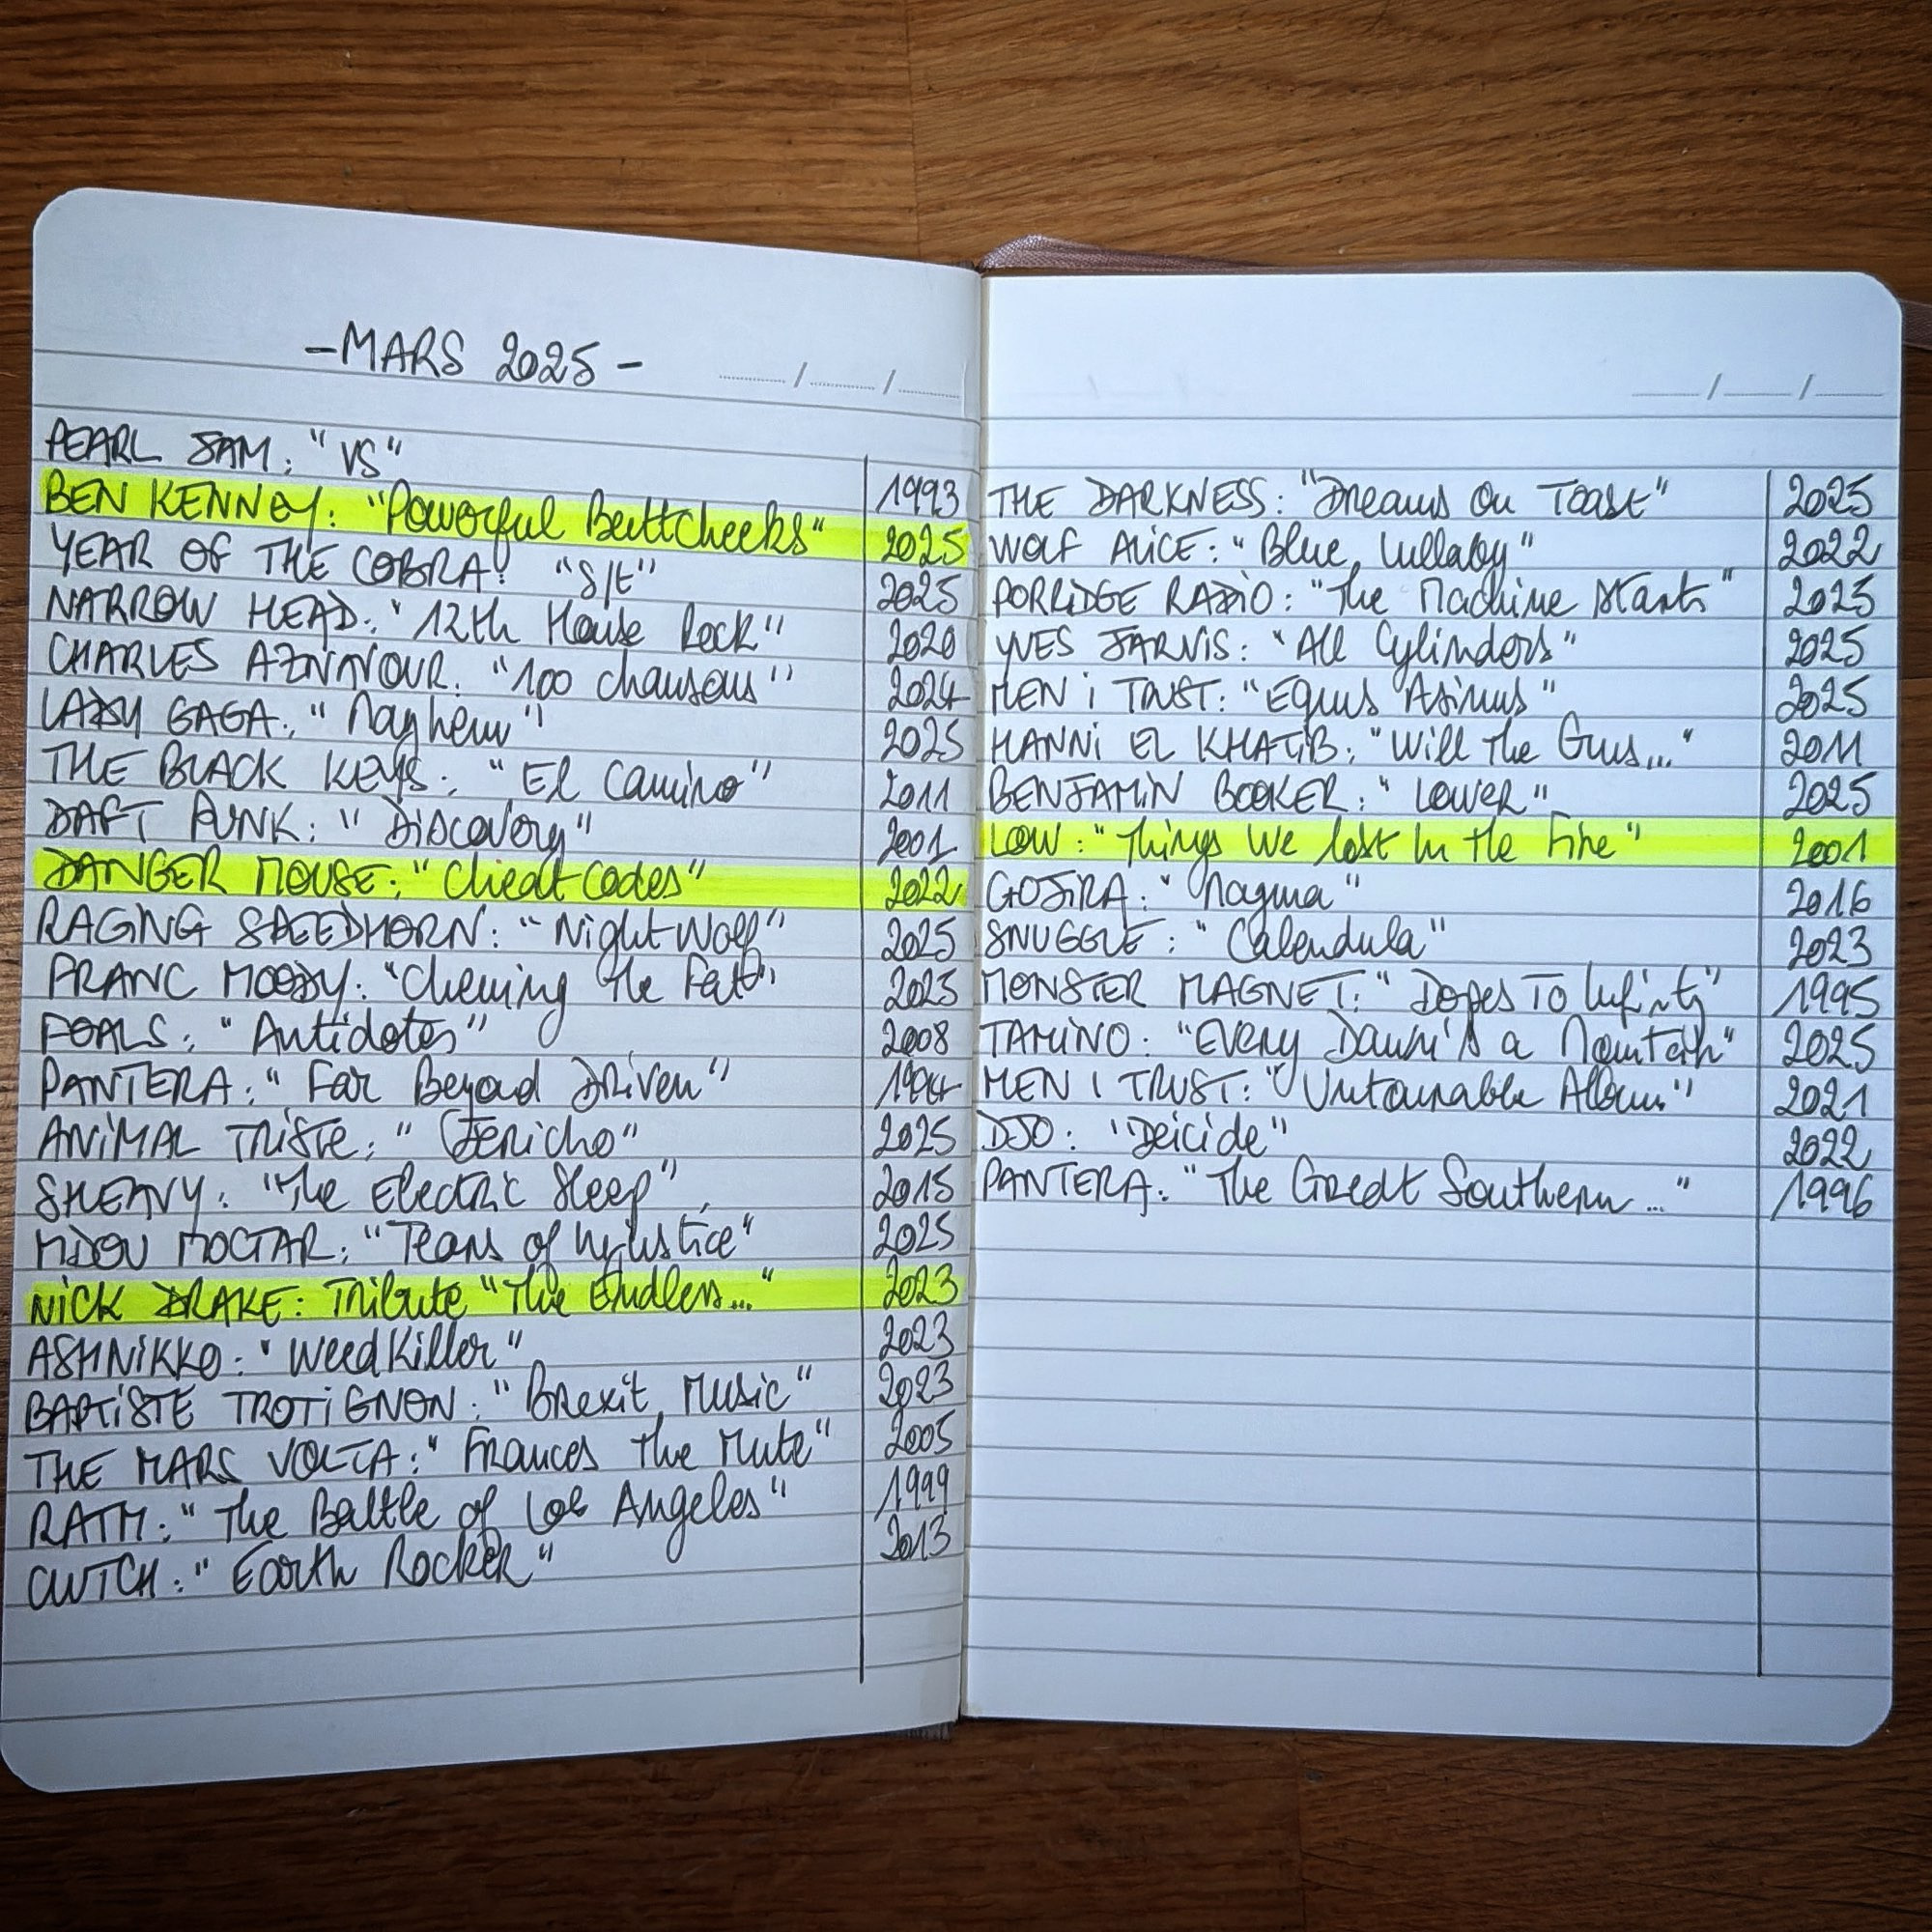 -MARS 2025-
PEARL JAM: "VS" 1993
BEN KENNEY: "Powerful Buttcheeks" 2025
YEAR OF THE COBRA: "S/t" 2025
NARROW HEAD: "12th House Rock" 2020
CHARLES AZNAVOUR: "100 chansons" 2024
LADY GAGA: "Mayhem" 2025
THE BLACK KEYS: "El Camino" 2011
DAFT PUNK: "Discovery" 2001
DANGER MOUSE: "Cheat Codes" 2022
RAGING SPEEDHORN: "Night Wolf" 2025
FRANC MOODY: "Chewing the Fat" 2025
FOALS: "Antidotes" 2008
PANTERA: "Far Beyond Driven" 1994
ANIMAL TRISTE: "Jericho" 2025
SHEAVY: "The Electric Sleep" 2015
MDOU MOCTAR: "Tears of Injustice" 2025
NICK DRAKE: Tribute "The Endless..." 2023
ASHNIKKO: "WeedKiller" 2023
BAPTISTE TROTIGNON: "Brexit Music" 2023
THE MARS VOLTA: "Frances The Mute" 2005
RATM: "The Battle of Los Angeles" 1999
CLUTCH: "Earth Rocker" 2013
THE DARKNESS: "Dreams On Toast" 2025
WOLF ALICE: "Blue Lullaby" 2022
PORRIDGE RADIO: "The Machine Starts" 2025
YVES JARVIS: "All Cylinders" 2025
MEN I TRUST: "Equus Asinus" 2025
HANNI EL KHATIB: "Will The Guns..." 2011
BENJAMIN BOOKER: "LOWER" 2025
LOW: "Things We lost In the Fire" 2001
GOJIRA: "Magma" 2016
SNUGGLE: "Calendula" 2023
MONSTER MAGNET: "Dopes TO Infinity" 1995
TAMINO: "Every Dawn's a Mountain" 2025
MEN I TRUST: "Untourable Album" 2021
DJO: "Decide" 2022
PANTERA: "The Great Southern..." 1996